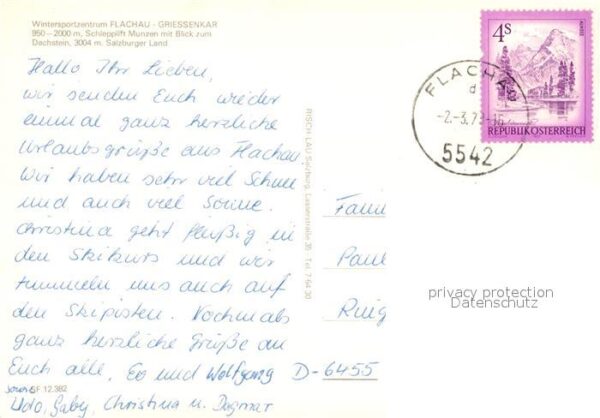 Wintersportzentrum FLACHAU - GRIESSENKAR
950-2000 m, Schlepplift Munzen mit Blick zum
Dachstein, 3004 m. Salzburger Land
Hallo Ihr Lieben,
wir senden Euch wieder
einmal ganz herzliche
Urlaubsgrüße aus Flachau
Wir haben sehr viel Schnee
und auch viel Sonne.
Christina geht fleißig in
den Skikurs und wir
tummeln uns auch auf
den Skipisten. Nochmals
ganz herzliche Grüße an
Euch alle, Eo und Wolfgang
sowie
Udo, Gaby, Christina u. Dagmar
SF 12.382
RISCH-LAU Salzburg, Tel. 7 64 30
4S
REPUBLIK ÖSTERREICH
FLACHAU
5542
Fami
Paul
D-6455
privacy protection
Datenschutz